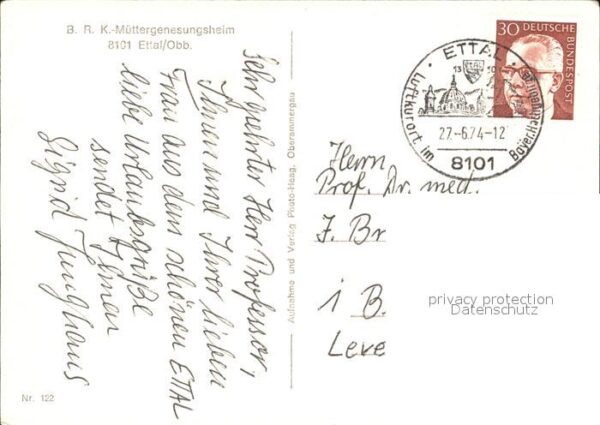 B. R. K.-Müttergenesungsheim
8101 Ettal/Obb.
Sehr geehrter Herr Professor,
Ihnen und Ihrer lieben
Frau aus dem schönen ETTAL
liebe Urlaubsgrüße
sendet Ihnen
Sigrid Junghaus
Nr. 122
Aufnahme und Verlag Photo-Haag, Oberammergau
30 DEUTSCHE BUNDESPOST
ETTAL
27.-6.74-12
8101
Luftkurort im
Herrn
Prof. Dr. med.
J. Br
i B.
Leve
privacy protection
Datenschutz